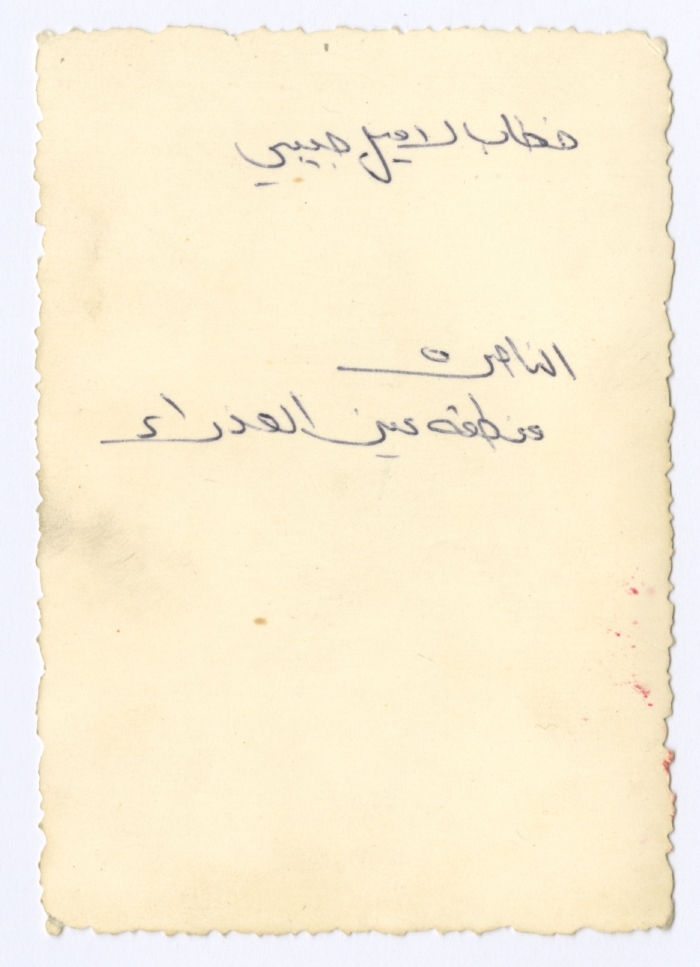 خطاب لاميل حبيبي
الناصرة
منطقة عين العذراء